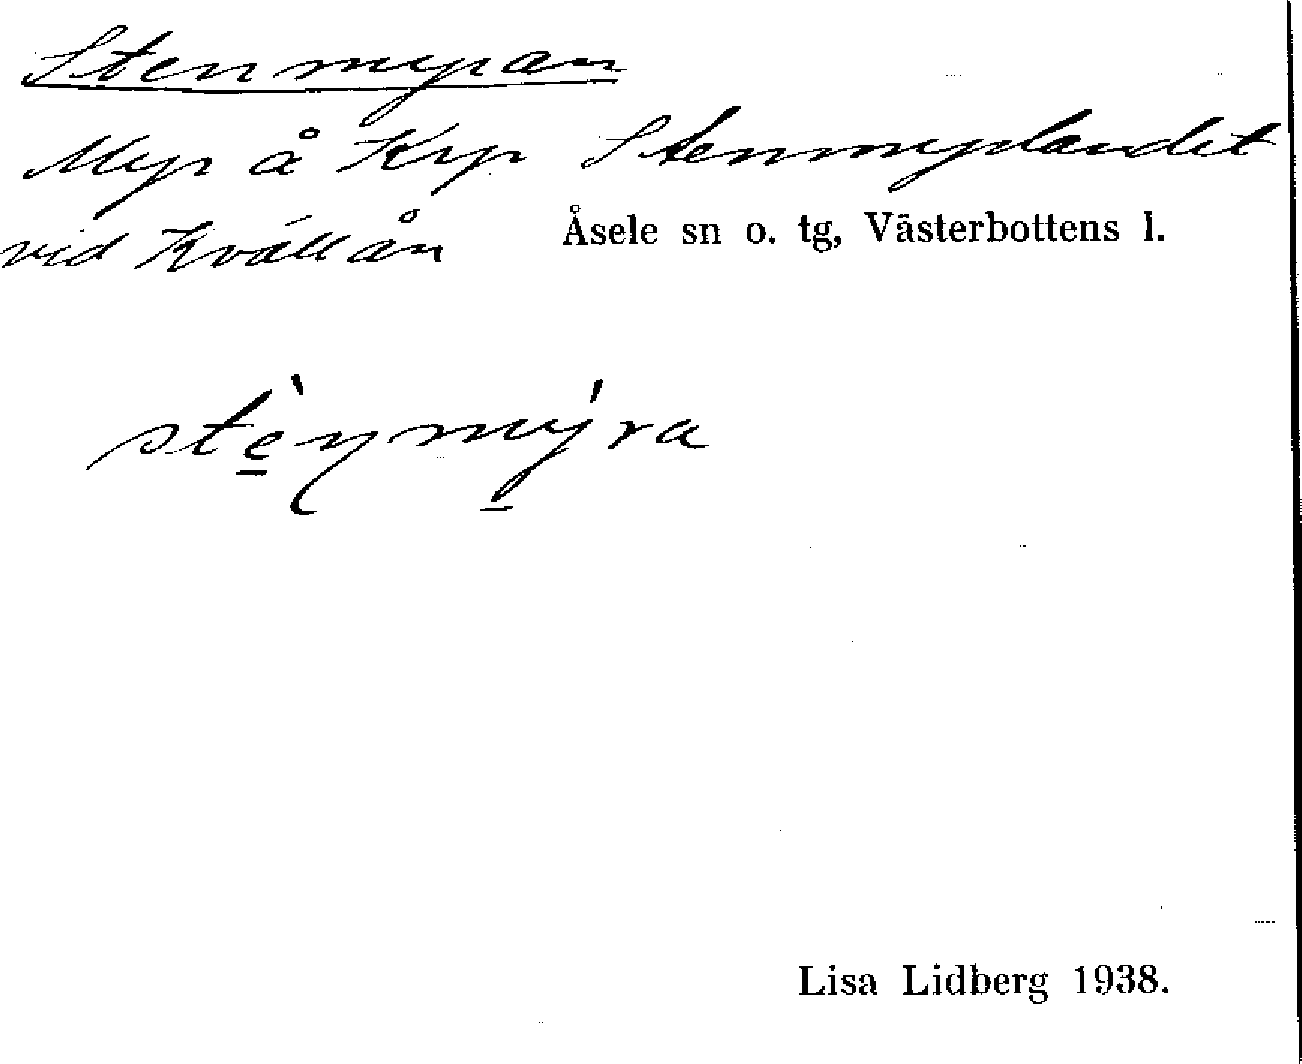 Stenmyran
Myr å Krp Stenmyrlandet
vid Kvällån
Åsele sn o. tg, Västerbottens l.
stè̠nmý̠ra
Lisa Lidberg 1938.